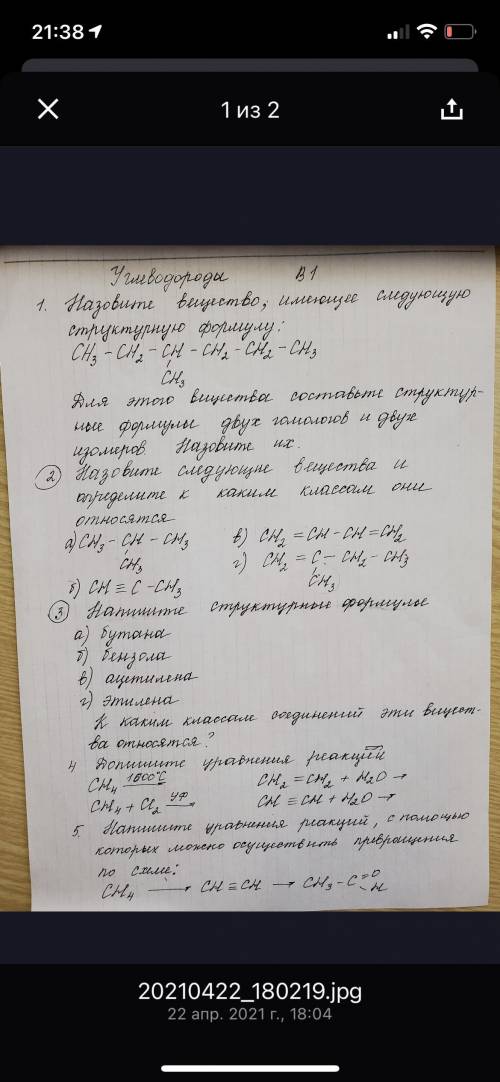 21:38
1 из 2
Углеводороды В1
1. Назовите вещество, имеющее следующую
структурную формулу:
CH3 – CH2 – CH – CH2 – CH2 – CH3
CH3
Для этого вещества составьте структур-
ные формулы двух гомологов и двух
изомеров. Назовите их.
2 Назовите следующие вещества и
определите к каким классам они
относятся
а) CH3 – CH – CH3 в) CH2 = CH – CH = CH2
CH3 г) CH2 = C – CH2 – CH3
б) CH ≡ C – CH3 CH3
3 Напишите структурные формулы
а) бутана
б) бензола
в) ацетилена
г) этилена
К каким классам соединений эти вещест-
ва относятся?
4 Допишите уравнения реакций
CH4 1500°C CH2 = CH2 + H2O →
CH4 + Cl2 УФ CH ≡ CH + H2O →
5. Напишите уравнения реакций, с помощью
которых можно осуществить превращения
по схеме:
CH4 → CH ≡ CH → CH3 – C = O
– H
20210422_180219.jpg
22 апр. 2021 г., 18:04